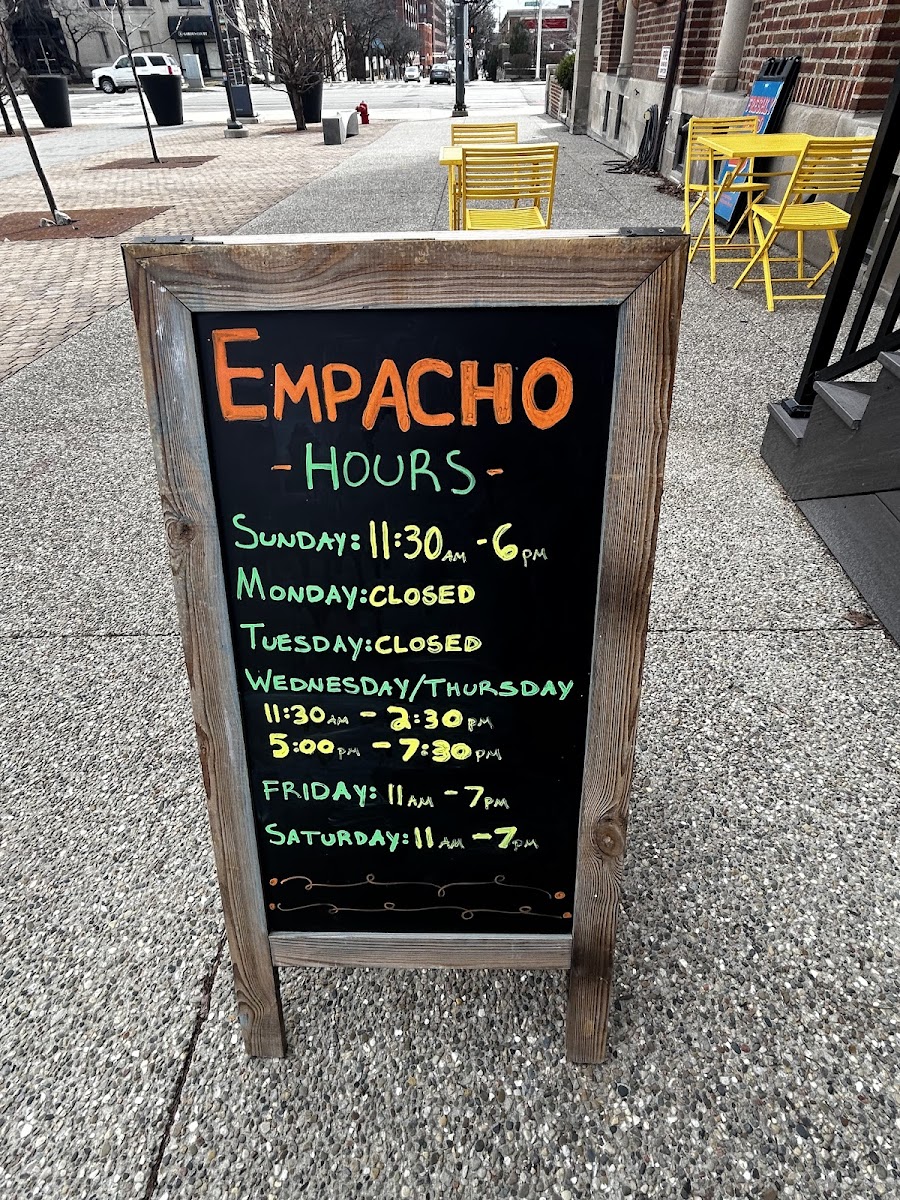 EMPACHO
- HOURS -
SUNDAY: 11:30 AM - 6 PM
MONDAY: CLOSED
TUESDAY: CLOSED
WEDNESDAY/THURSDAY
11:30 AM - 2:30 PM
5:00 PM - 7:30 PM
FRIDAY: 11 AM - 7 PM
SATURDAY: 11 AM - 7 PM